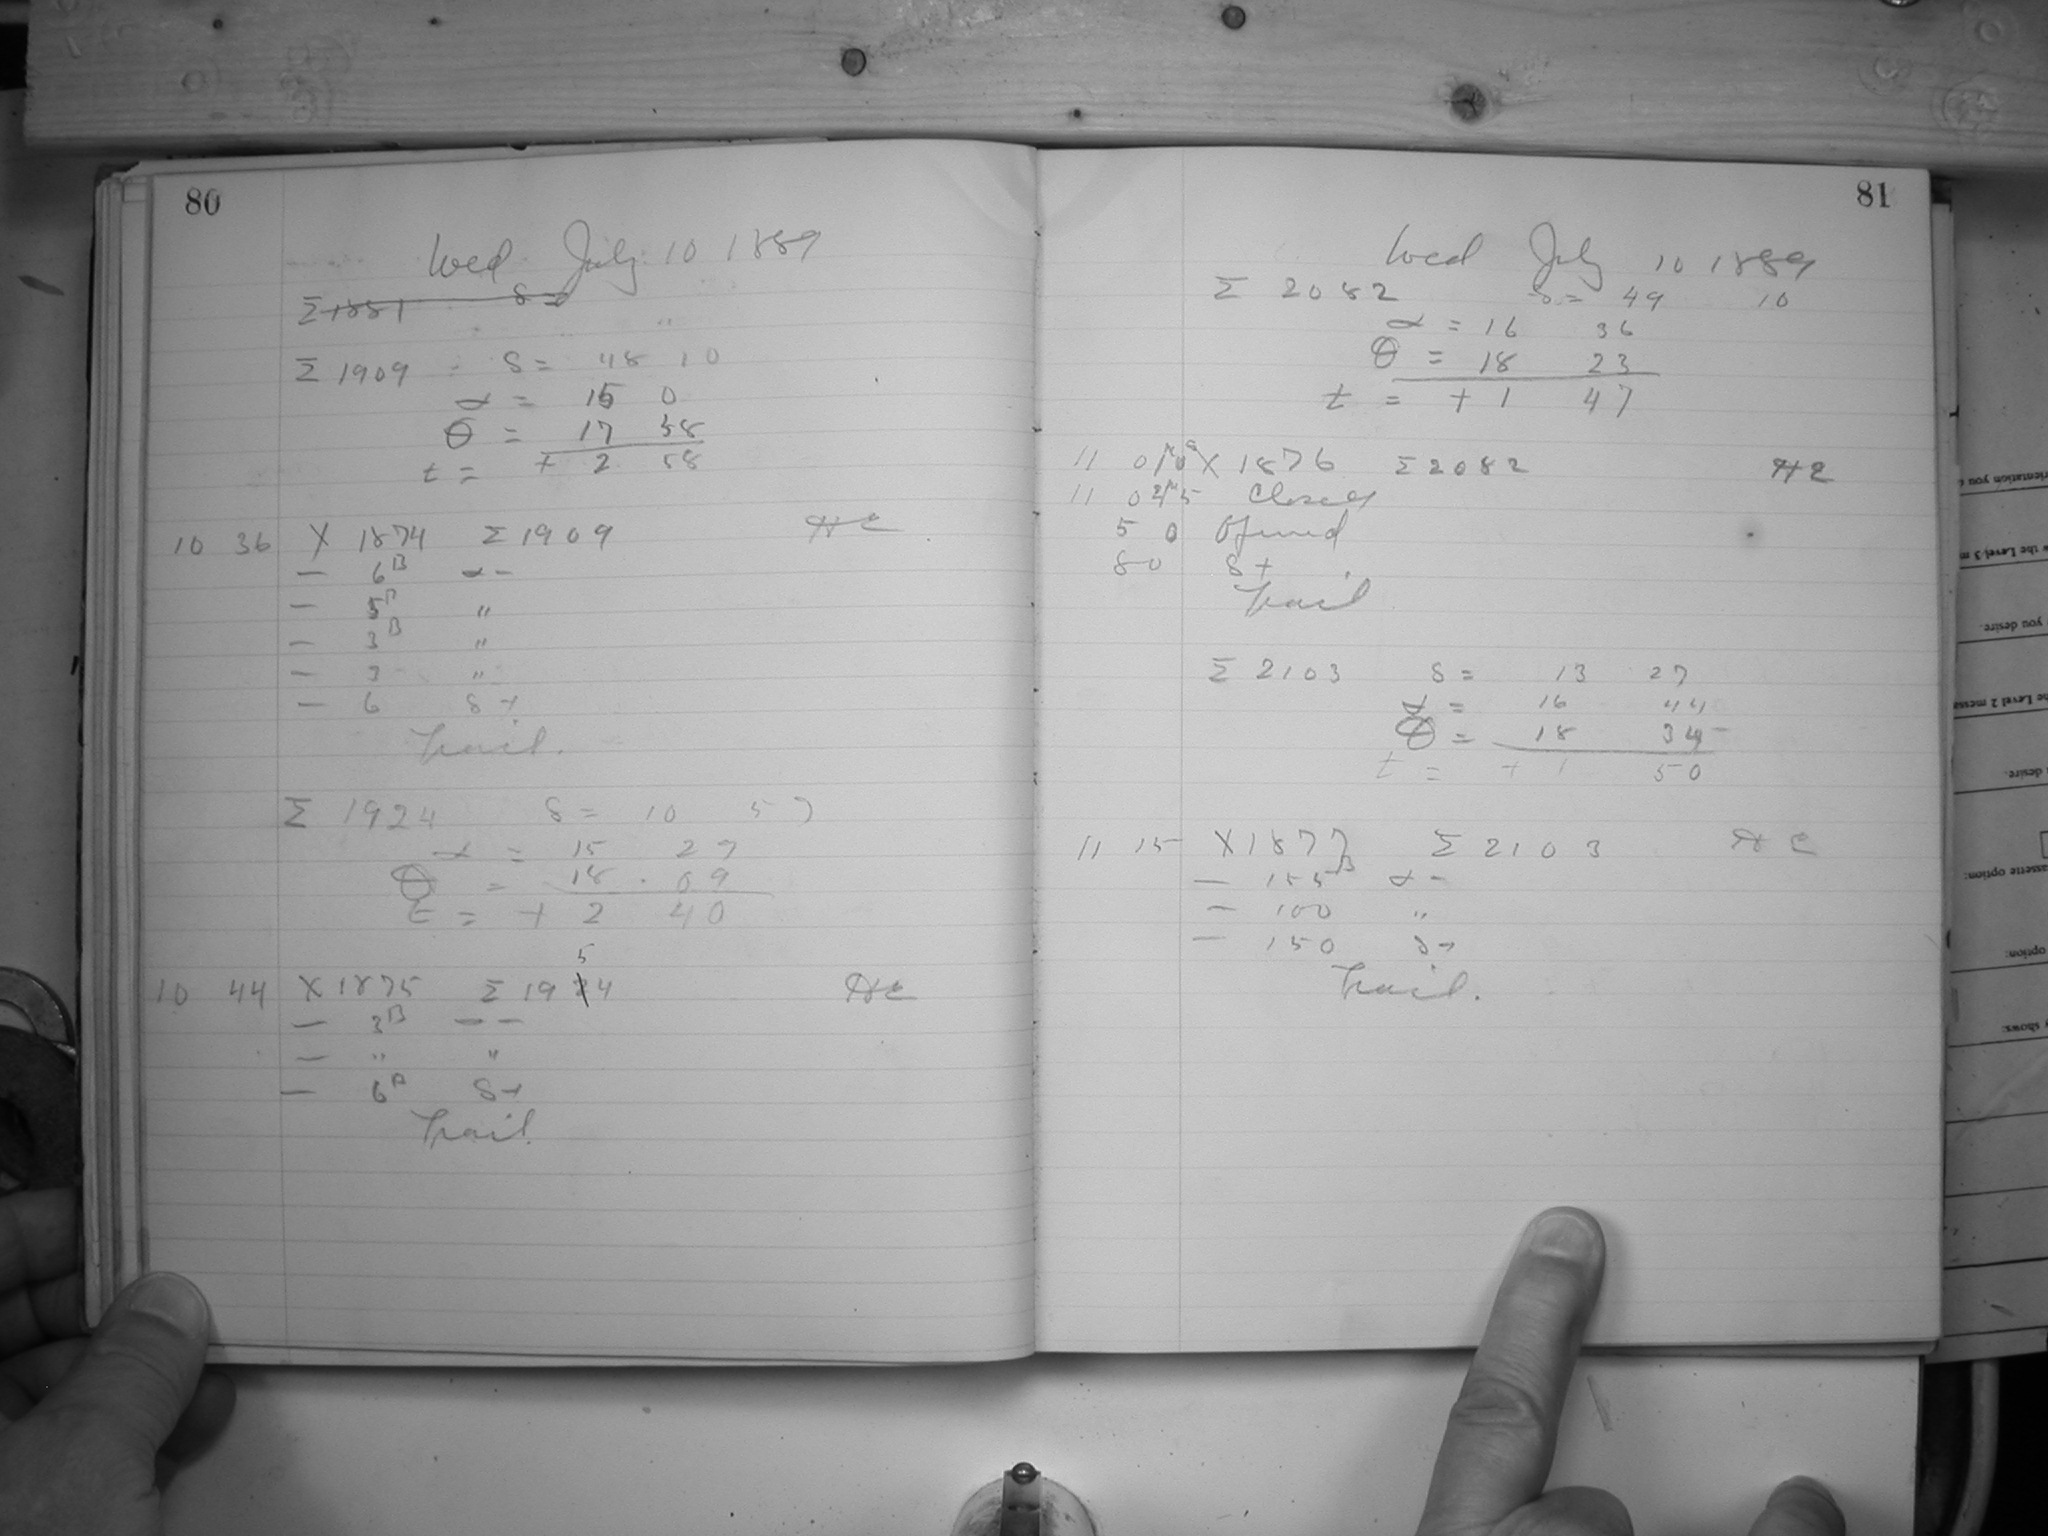 80
Wed July 10 1889
Σ 1881 δ =
Σ 1909 δ = 48 10
α = 15 0
θ = 17 58
t = + 2 58
10 36 X 1874 Σ 1909 HE
— 6B α -
— 5B "
— 3B "
— 3 "
— 6 δ +
Trail.
Σ 1924 δ = 10 57
α = 15 29
θ = 18 . 09
t = + 2 40
5
10 44 X 1875 Σ 19 24 HE
— 3B — —
— " "
— 6B δ +
Trail.
81
Wed July 10 1889
Σ 2082 δ = 49 10
α = 16 36
θ = 18 23
t = + 1 47
11 0 X 1876 Σ 2082 HE
11 02 5 Closed
5 0 Opened
80 δ +
Trail
Σ 2103 δ = 13 27
α = 16 44
θ = 18 34
t = + 1 50
11 15 X 1877 Σ 2103 HE
— 155B α -
— 100 "
— 150 δ +
Trail.
rientation
you desire.
desire.
assette option:
option:
shows: